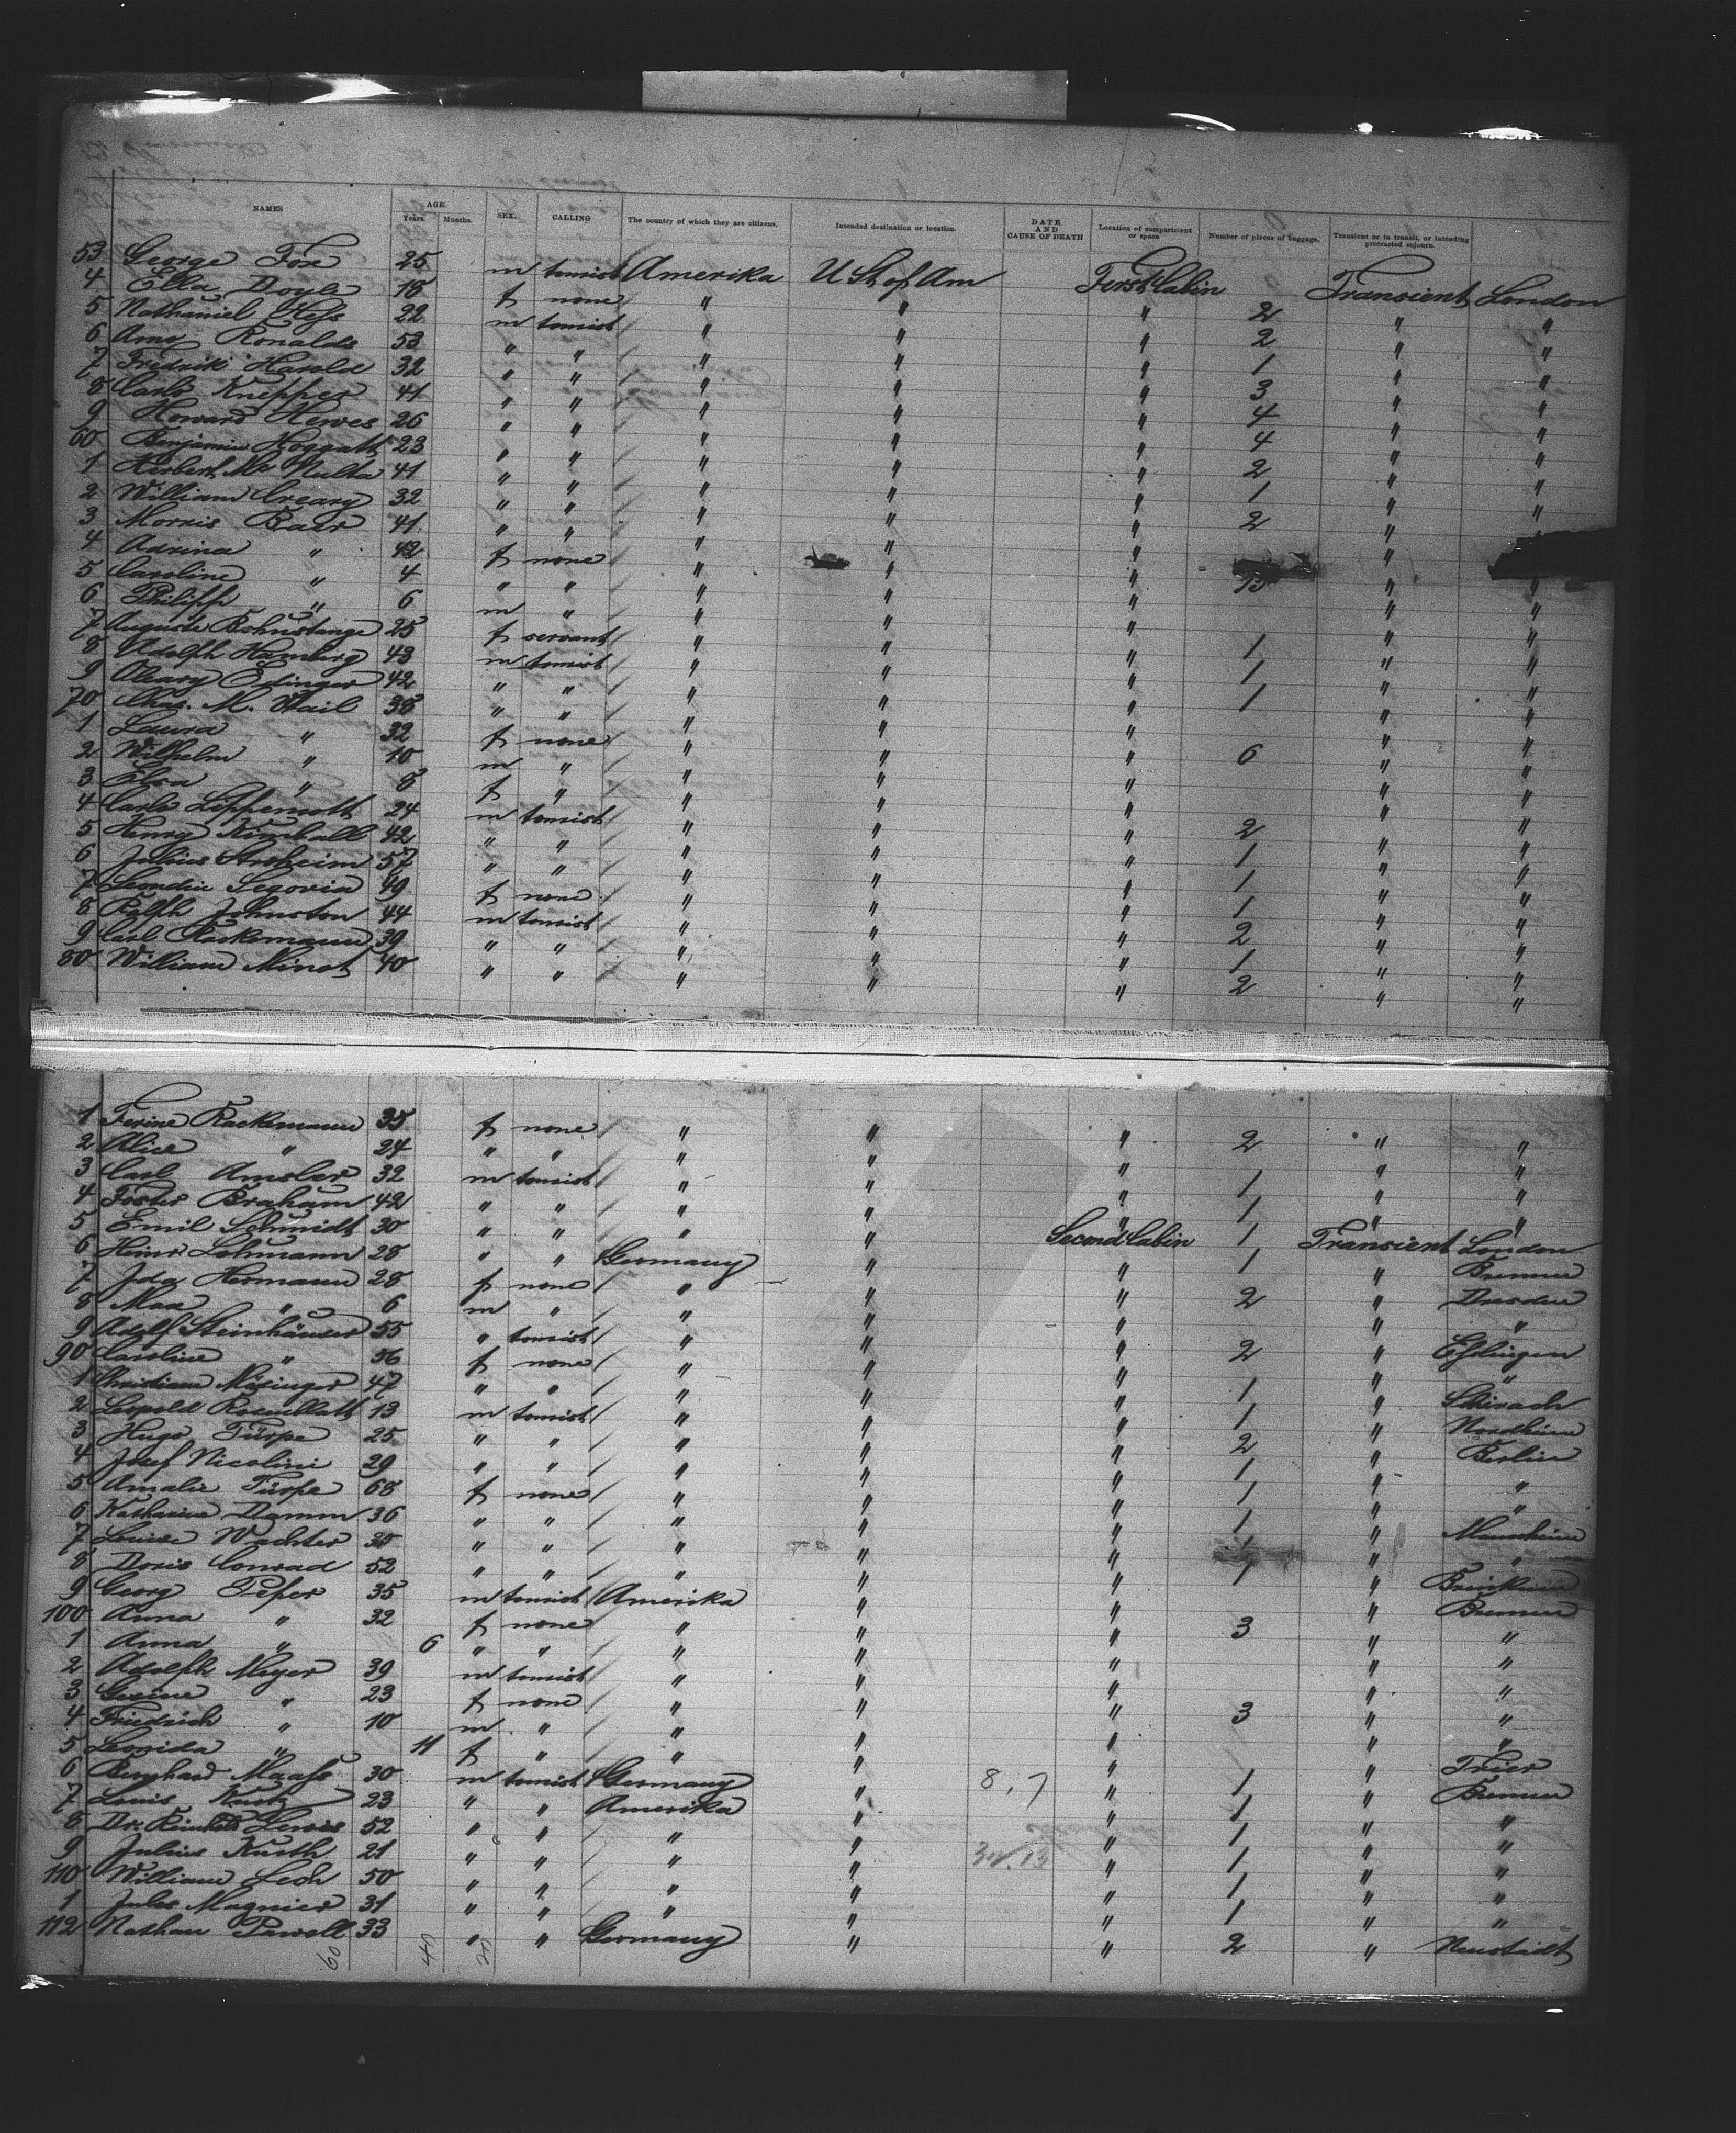 NAMES AGE. Years. Months. SEX. CALLING The country of which they are citizens. Intended destination or location. DATE AND CAUSE OF DEATH Location of compartment or space Number of pieces of baggage. Transient or in transit, or intending protracted sojourn.
53 George Fox 25 m tourist Amerika U St of Am First Cabin Transient London
4 Ella Doyle 18 f none " " " 2 " "
5 Nathaniel Hess 22 m tourist " " " 2 " "
6 Amos Ronalds 53 " " " " " 1 " "
7 Fredrik Harold 32 " " " " " 3 " "
8 Carls Knepper 41 " " " " " 4 " "
9 Howard Hewes 26 " " " " " 4 " "
60 Benjamin Hoggatt 23 " " " " " 2 " "
1 Herbert Mc Nulta 41 " " " " " 1 " "
2 William Creary 32 " " " " " 2 " "
3 Morris Baer 41 " " " " " "
4 Adrina " 42 f none " " " "
5 Caroline " 4 " " " " " " "
6 Philipp " 6 m " " " " " "
7 Auguste Bohnstange 25 f servant " " " 1 " "
8 Adolph Homberg 43 m tourist " " " 1 " "
9 Oleary Edinger 42 " " " " " 1 " "
70 Chas. M. Hail 38 " " " " " " "
1 Laura " 32 f none " " " 6 " "
2 Wilhelm " 10 m " " " " " "
3 Elsa " 8 f " " " " " "
4 Carls Lippencott 24 m tourist " " " 2 " "
5 Henry Kimball 42 " " " " " 1 " "
6 Julius Stroheim 57 " " " " " 1 " "
7 Leondin Segovia 49 f none " " " 1 " "
8 Ralph Johnston 44 m tourist " " " 2 " "
9 Carl Rackemann 39 " " " " " 1 " "
80 William Minot 40 " " " " " 2 " "
1 Ferine Rackemann 35 f none " " " 2 " "
2 Alice " 24 " " " " " " "
3 Carl Amsler 32 m tourist " " " 1 " "
4 Foster Braham 42 " " " " " 1 " "
5 Emil Schmidt 30 " " " " Second Cabin 1 Transient London
6 Heinr Lehmann 28 " " Germany " " 1 " Bremen
7 Ida Hermann 28 f none " " " 2 " Dresden
8 Max " 6 m " " " " " "
9 Adolf Steinhäuser 55 " tourist " " " 2 " Esslingen
90 Caroline " 56 f none " " " " "
1 Nösinger 47 " " " " " 1 "
2 Leopold Rosenblatt 13 m tourist " " " 1 " Nordheim
3 Hugo Türpe 25 " " " " " 2 " Berlin
4 Josef Nicolini 29 " " " " " 1 " "
5 Amalie Türpe 68 f none " " " 1 " "
6 Katharina Damm 36 " " " " " 1 " Mannheim
7 Louise Wachter 35 " " " " " " "
8 Doris Conrad 52 " " " " " 1 " Brinkum
9 Georg Peper 35 m tourist Amerika " " " Bremen
100 Anna " 32 f none " " " 3 " "
1 Anna " 6 " " " " " " "
2 Adolph Meyer 39 m tourist " " " " "
3 Gesine " 23 f none " " " 3 " "
4 Friedrich " 10 m " " " " " "
5 Leonida " 11 f " " " " "
6 Bernhard Maass 30 m tourist Germany " 8, 7 " 1 " Trier
7 Louis Kurtz 23 " " Amerika " " 1 " Bremen
8 Dr. Reinhold Lewis 52 " " " " " 1 " "
9 Julius Kurth 21 " " " " " 1 " "
110 William Lech 50 " " " " " 1 " "
1 Jules Magnier 31 " " " " " 1 " "
112 Nathan Powell 33 " " Germany " " 2 " Neustadt
60 40 20